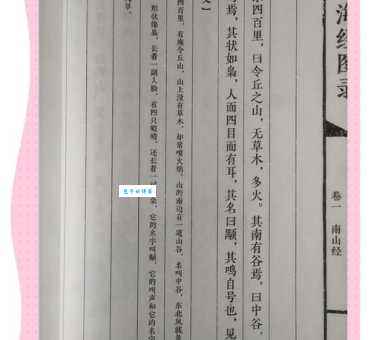 海经图录
卷一 南山经
东四百里，曰令丘之山，无草木，多火。其南有谷焉，曰中谷，
焉，其状如枭，人面四目而有耳，其名曰颙，其鸣自号也，见
文】
四百里，有座令丘山，山上没有草木，却常喷火焰。山的南边有一道山谷，名叫中谷，东北风就是
形状像枭，长着一副人脸，有四只眼睛，还长着一 朵，它的名字叫颙，它的叫声和它的名字